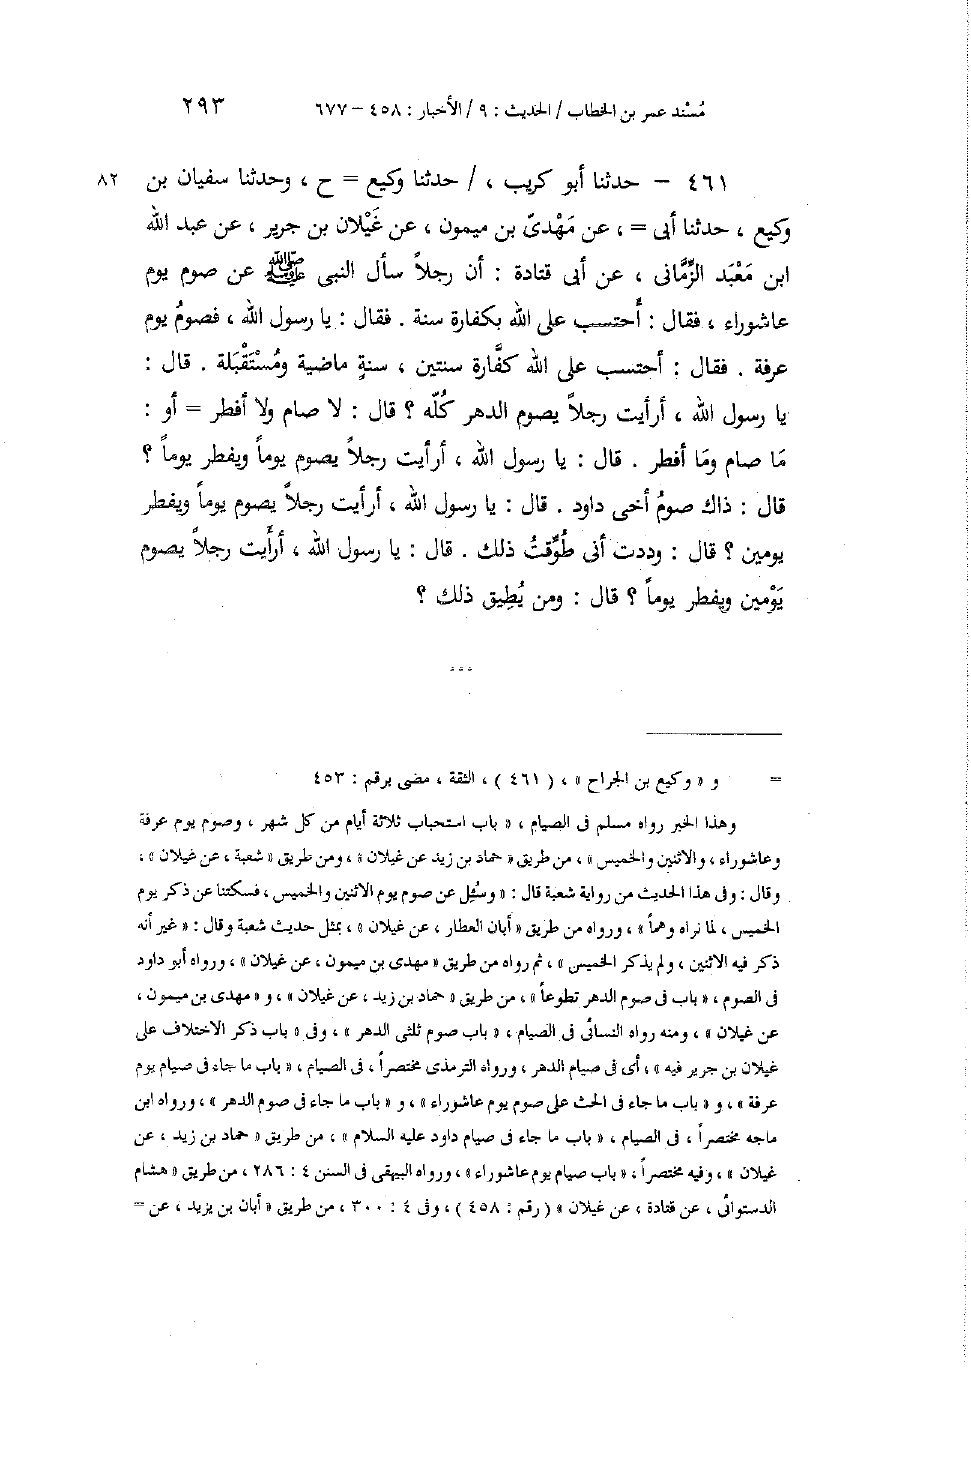 مُسْند عمر بن الخطاب / الحديث : ٩ / الأخبار : ٤٥٨ – ٦٧٧ ٢٩٣
٤٦١ – حدثنا أبو كريب ، / حدثنا وكيع = ح ، وحدثنا سفيان بن ٨٢
وكيع ، حدثنا أبى = ، عن مَهْدىّ بن ميمون ، عن غَيْلان بن جرير ، عن عبد الله
ابن مَعْبَد الزِّمَّانى ، عن أبى قتادة : أن رجلاً سأل النبى ﷺ عن صوم يوم
عاشوراء ، فقال : أُحتسب على الله بكفارة سنة . فقال : يا رسول الله ، فصومُ يوم
عرفة . فقال : أحتسب على الله كفَّارة سنتين ، سنةٍ ماضية ومُسْتَقْبَلة . قال :
يا رسول الله ، أرأيت رجلاً يصوم الدهر كُلّه ؟ قال : لا صام ولا أفطر = أو :
مَا صام ومَا أفطر . قال : يا رسول الله ، أرأيت رجلاً يصوم يوماً ويفطر يوماً ؟
قال : ذاك صومُ أخى داود . قال : يا رسول الله ، أرأيت رجلاً يصوم يوماً ويفطر
يومين ؟ قال : وددت أنى طُوِّقتُ ذلك . قال : يا رسول الله ، أرأيت رجلاً يصوم
يَوْمين ويفطر يوماً ؟ قال : ومن يُطِيق ذلك ؟
* * *
= و « وكيع بن الجراح » ، ( ٤٦١ ) ، الثقة ، مضى برقم : ٤٥٣
وهذا الخبر رواه مسلم فى الصيام ، « باب استحباب ثلاثة أيام من كل شهر ، وصوم يوم عرفة
وعاشوراء ، والاثنين والخميس » ، من طريق « حماد بن زيد عن غيلان » ، ومن طريق « شعبة ، عن غيلان » ،
وقال : وفى هذا الحديث من رواية شعبة قال : « وسُئِل عن صوم يوم الاثنين والخميس ، فسكتنا عن ذكر يوم
الخميس ، لما نراه وهماً » ، ورواه من طريق « أبان العطار ، عن غيلان » ، بمثل حديث شعبة وقال : « غير أنه
ذكر فيه الاثنين ، ولم يذكر الخميس » ، ثم رواه من طريق « مهدى بن ميمون ، عن غيلان » ، ورواه أبو داود
فى الصوم ، « باب فى صوم الدهر تطوعاً » ، من طريق « حماد بن زيد ، عن غيلان » ، و « مهدى بن ميمون ،
عن غيلان » ، ومنه رواه النسائى فى الصيام ، « باب صوم ثلثى الدهر » ، وفى « باب ذكر الاختلاف على
غيلان بن جرير فيه » ، أى فى صيام الدهر ، ورواه الترمذى مختصراً ، فى الصيام ، « باب ما جاء فى صيام يوم
عرفة » ، و « باب ما جاء فى الحث على صوم يوم عاشوراء » ، و « باب ما جاء فى صوم الدهر » ، ورواه ابن
ماجه مختصراً ، فى الصيام ، « باب ما جاء فى صيام داود عليه السلام » ، من طريق « حماد بن زيد ، عن
غيلان » ، وفيه مختصراً ، « باب صيام يوم عاشوراء » ، ورواه البيهقى فى السنن ٤ : ٢٨٦ ، من طريق « هشام
الدستوائى ، عن قتادة ، عن غيلان » ( رقم : ٤٥٨ ) ، وفى ٤ : ٣٠٠ ، من طريق « أبان بن يزيد ، عن =